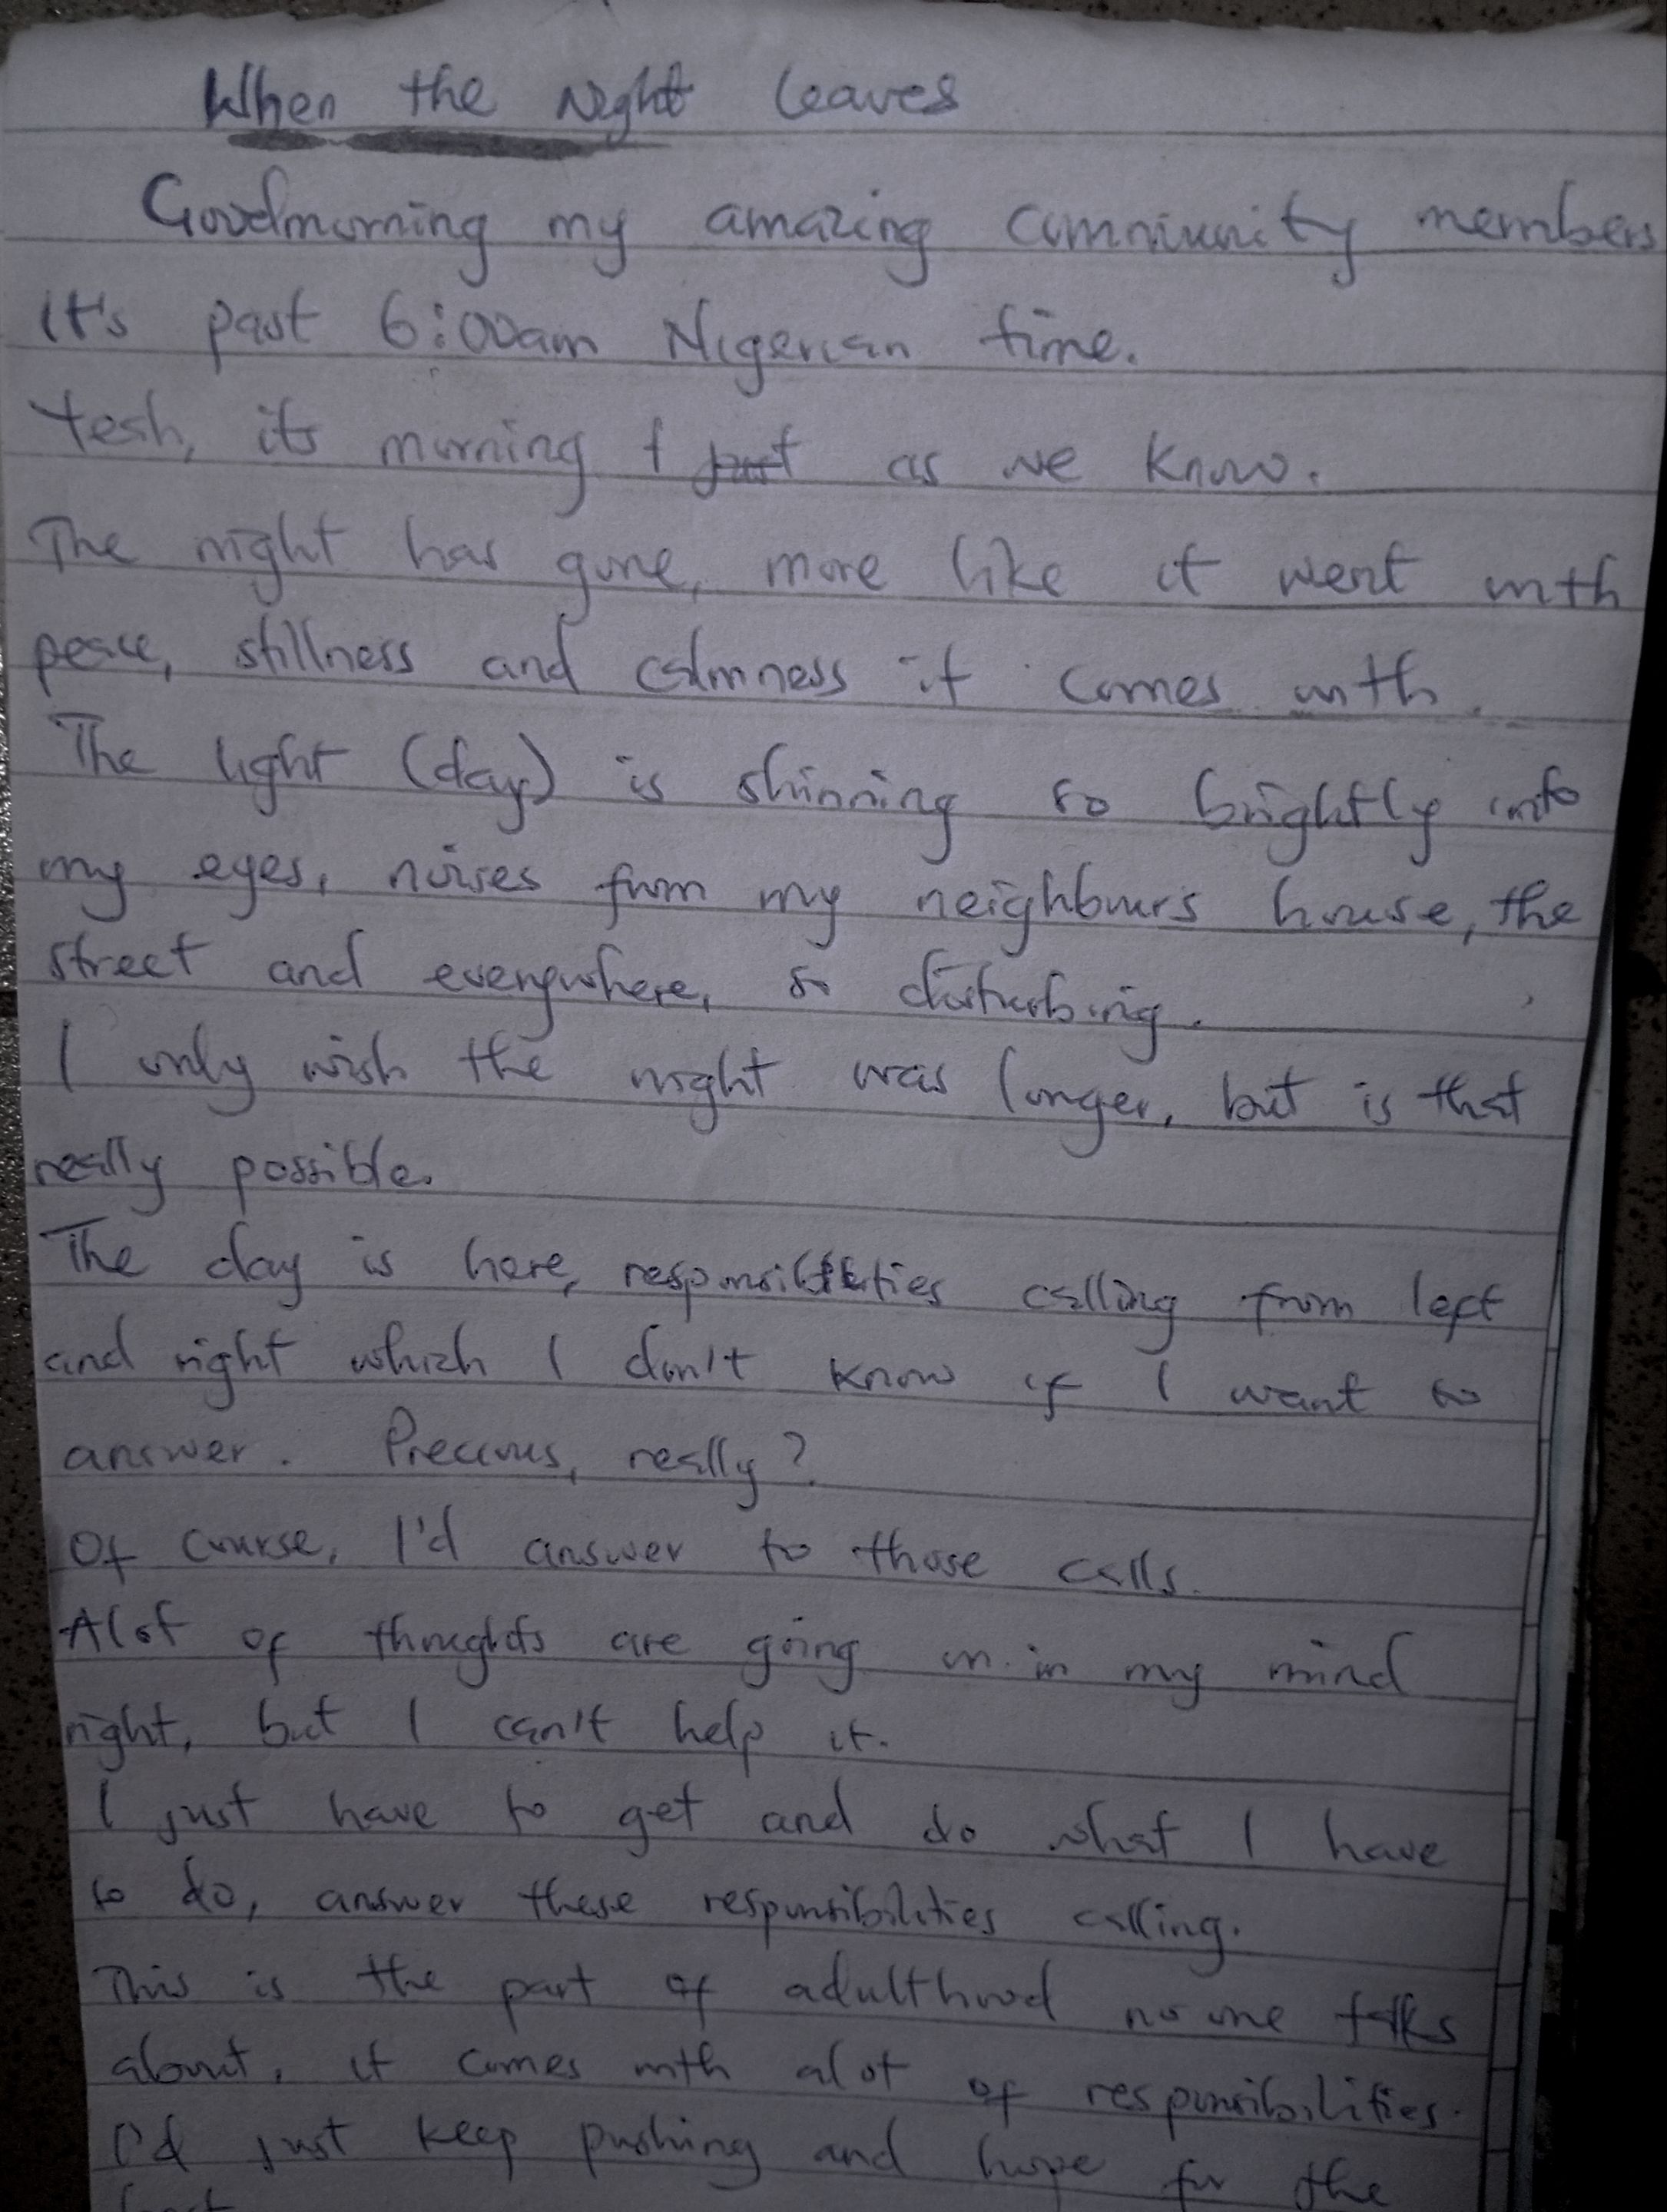 When the Night leaves
Goodmorning my amazing community members
It's past 6:00am Nigerian time.
Yeah, its morning just as we know.
The night has gone, more like it went with
peace, stillness and calmness it comes with.
The light (day) is shinning so brightly into
my eyes, noises from my neighbours house, the
street and everywhere, so disturbing.
I only wish the night was longer, but is that
really possible.
The day is here, responsibilities calling from left
and right which I don't know if I want to
answer. Precious, really?
Of course, I'd answer to those calls.
Alot of thoughts are going on in my mind
right, but I can't help it.
I just have to get and do what I have
to do, answer these responsibilities calling.
This is the part of adulthood no one talks
about, it comes with alot of responsibilities.
I'd just keep pushing and hope for the